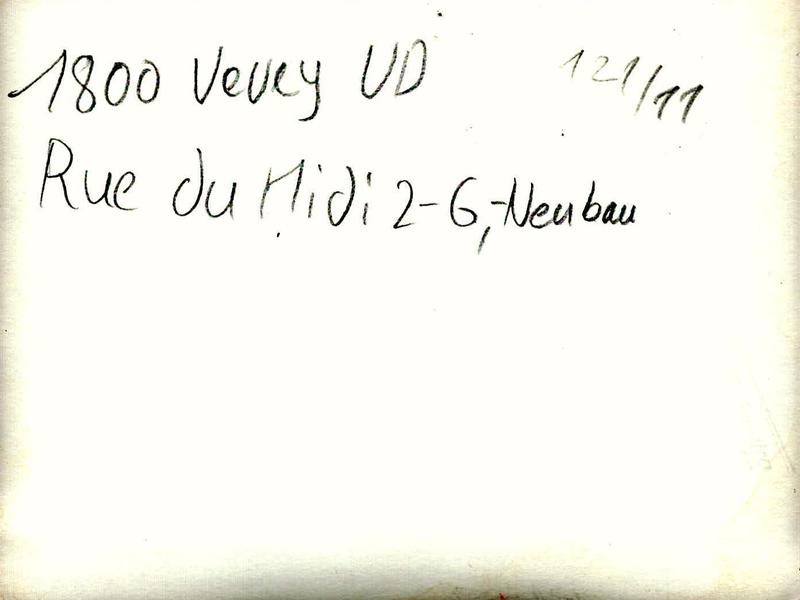 1800 Vevey VD 121/11
Rue du Midi 2-6, Neubau